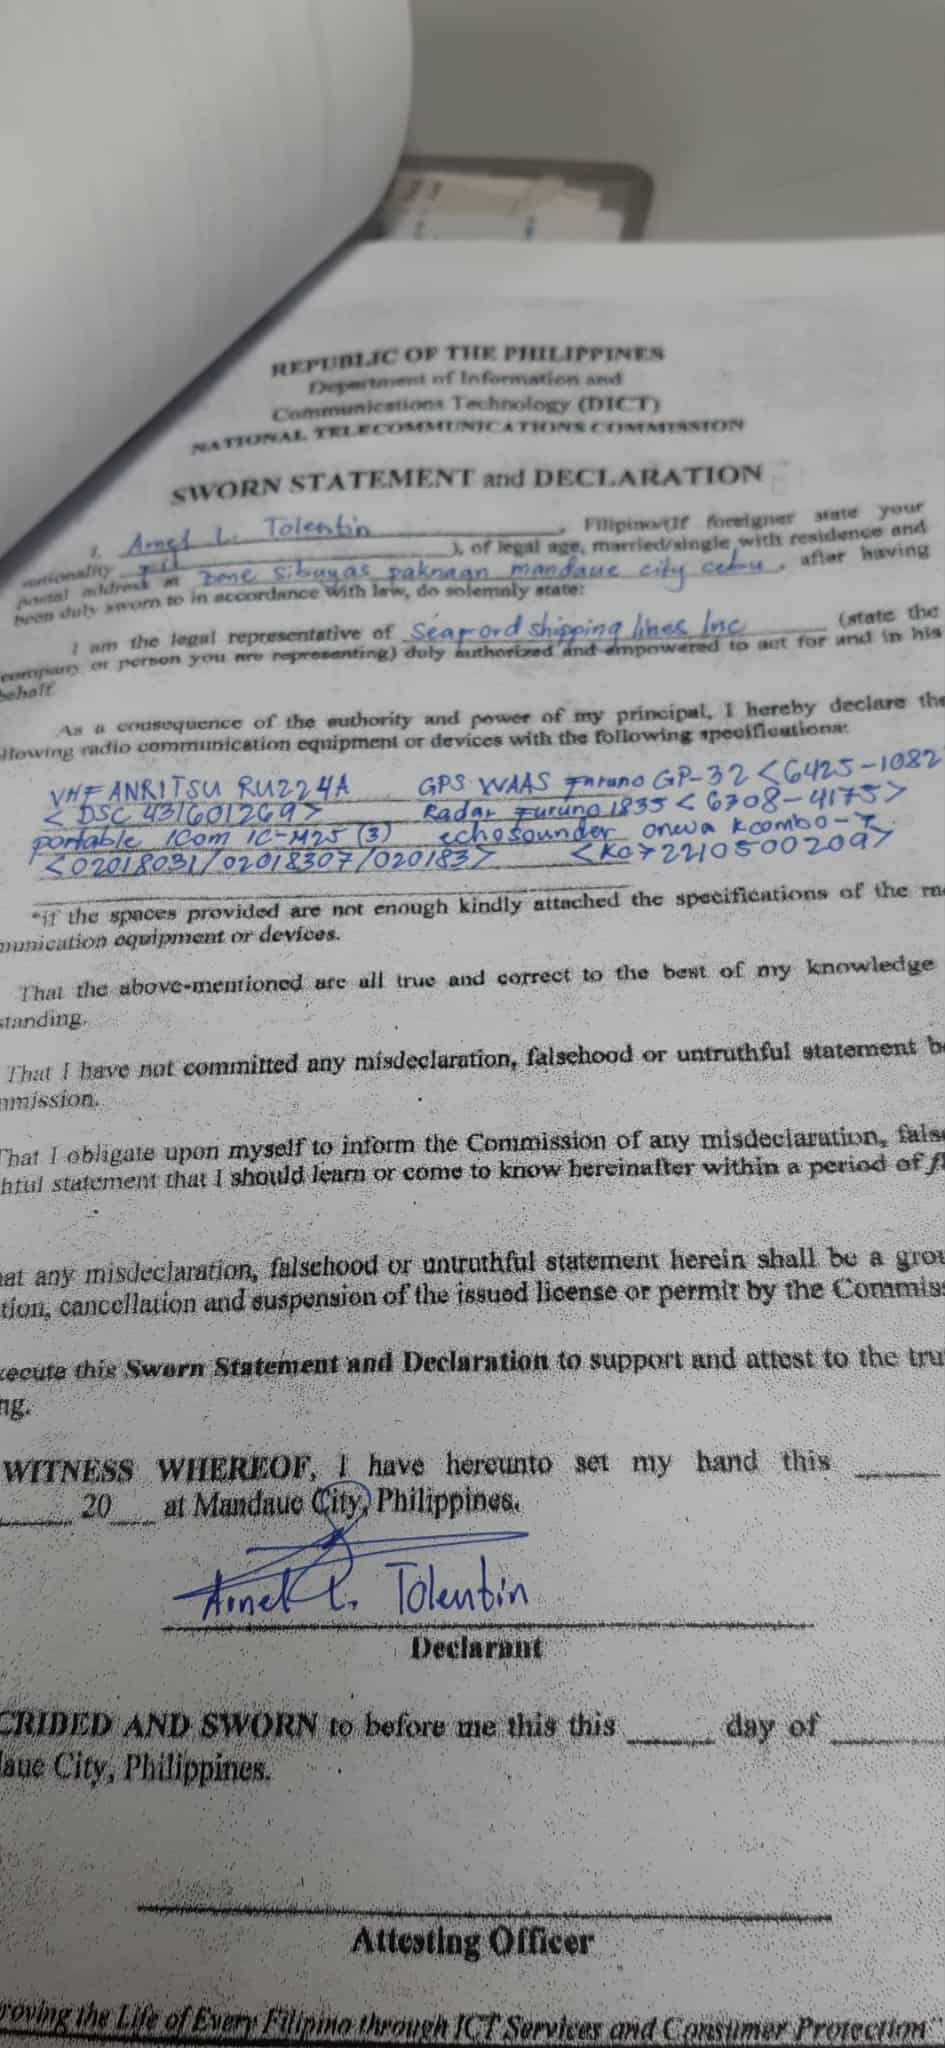 REPUBLIC OF THE PHILIPPINES
Department of Information and
Communications Technology (DICT)
NATIONAL TELECOMMUNICATIONS COMMISSION
SWORN STATEMENT and DECLARATION
I, Arnel L. Tolentin, Filipino/(If foreigner state your
nationality ), of legal age, married/single with residence and
postal address at zone sibuyas paknaan mandaue city cebu, after having
been duly sworn to in accordance with law, do solemnly state:
I am the legal representative of Seaford shipping lines Inc (state the
company or person you are representing) duly authorized and empowered to act for and in his
behalf
As a consequence of the authority and power of my principal, I hereby declare the
llowing radio communication equipment or devices with the following specifications:
VHF ANRITSU RU224A GPS WAAS Furuno GP-32 <6425-1082
<DSC 431601269> Radar Furuno 1835 <6308-4175>
portable ICom IC-M25 (3) echosounder onwa Kcombo-7
<02018031/02018307/020183> <K072210500209>
*if the spaces provided are not enough kindly attached the specifications of the ra
munication equipment or devices.
That the above-mentioned are all true and correct to the best of my knowledge
standing.
That I have not committed any misdeclaration, falsehood or untruthful statement be
mmission.
That I obligate upon myself to inform the Commission of any misdeclaration, false
hful statement that I should learn or come to know hereinafter within a period of
at any misdeclaration, falsehood or untruthful statement herein shall be a grou
tion, cancellation and suspension of the issued license or permit by the Commiss
xecute this Sworn Statement and Declaration to support and attest to the tru
ng.
WITNESS WHEREOF, I have hereunto set my hand this ____
____ 20__ at Mandaue City, Philippines.
Arnel L. Tolentin
Declarant
CRIBED AND SWORN to before me this this ____ day of ____
daue City, Philippines.
Attesting Officer
roving the Life of Every Filipino through ICT Services and Consumer Protection"